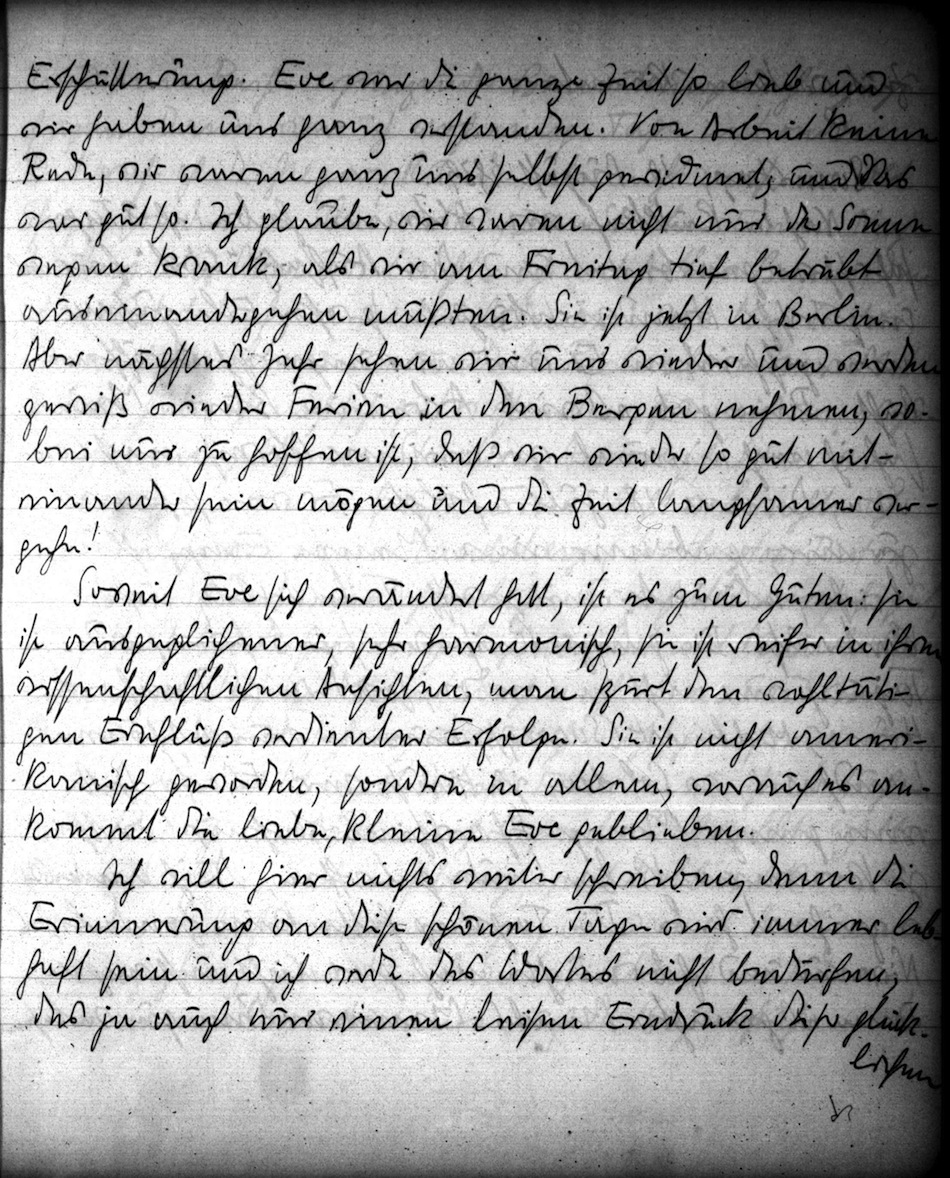 Erschütterung. Eve war die ganze Zeit so lieb und
wir haben uns ganz verstanden. Von Arbeit keine
Rede, wir waren ganz uns selbst gewidmet, und das
war gut so. Ich glaube, wir waren nicht nur der Sonne
wegen krank, als wir am Freitag tief betrübt
auseinandergehen mußten. Sie ist jetzt in Berlin.
Aber nächstes Jahr sehen wir uns wieder und werden
gewiß wieder Ferien in den Bergen nehmen, wo-
bei nur zu hoffen ist, daß wir wieder so gut mit-
einander sein mögen und die Zeit langsamer ver-
gehe!
Soweit Eve sich verändert hat, ist es zum Guten: sie
ist ausgeglichener, sehr harmonisch, sie ist reifer in ihren
wissenschaftlichen Ansichten, man spürt den wohltäti-
gen Einfluß verdienter Erfolge. Sie ist nicht ameri-
kanisch geworden, sondern in allem, worauf es an-
kommt die liebe, kleine Eve geblieben.
Ich will hier nichts weiter schreiben, denn die
Erinnerung an diese schönen Tage wird immer leb-
haft sein und ich werde des Wortes nicht bedürfen,
das ja auch nur einen leisen Eindruck dieser glück-
lichen